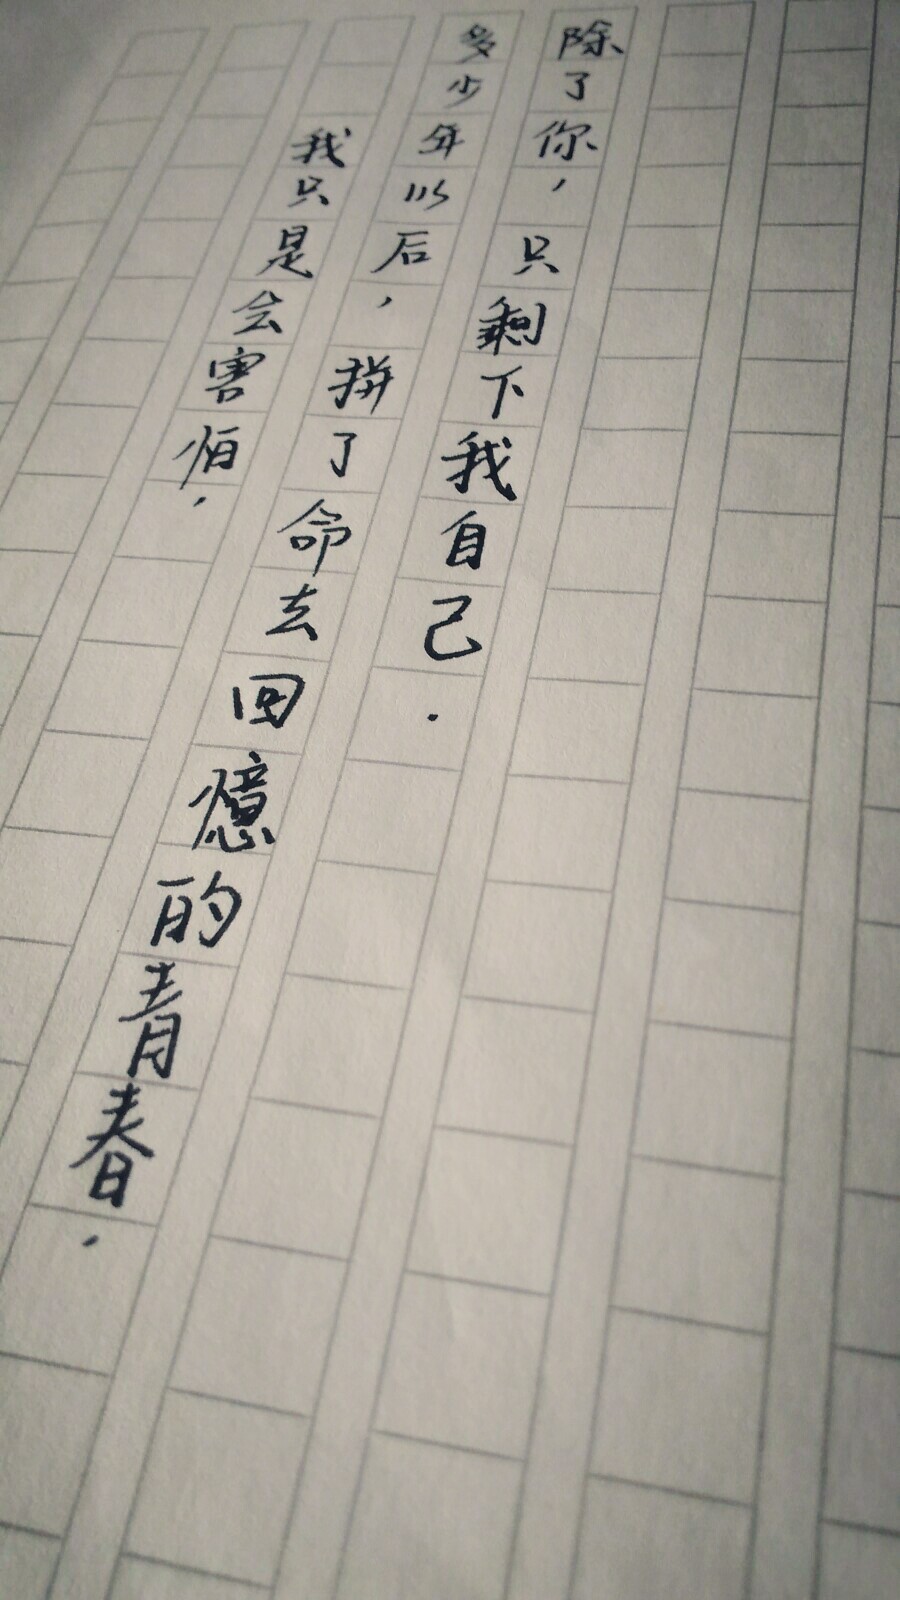 除了你，只剩下我自己.
多少年以后，拼了命去回憶的青春.
我只是会害怕，